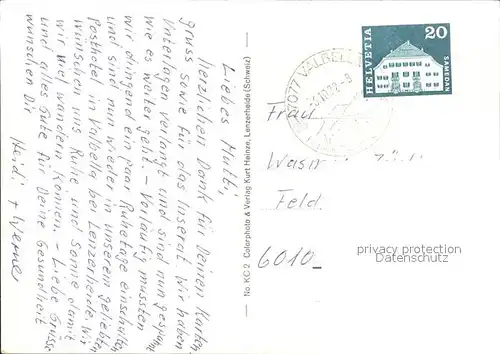 Liebes Mutti,
herzlichen Dank für Deinen Karten-
gruss sowie für das Inserat. Wir haben
Unterlagen verlangt und sind nun gespannt
wie es weiter geht. - Vorläufig mussten
wir dringend ein paar Ruhetage einschalten
und sind nun wieder in unserem geliebten
Posthotel in Valbella bei Lenzerheide. Wir
wünschen uns Ruhe und Sonne damit
wir viel wandern können. - Liebe Grüsse
und alles Gute für Deine Gesundheit
wünschen Dir
Heidi + Werner
No. KC 2 Colorphoto & Verlag Kurt Heinzen, Lenzerheide (Schweiz)
7077 VALBELLA
HELVETIA
20
SAMEDAN
Frau
Feld
6010
privacy protection
Datenschutz